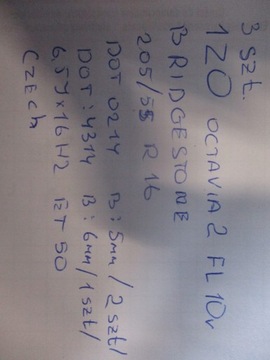 3 szt.
1Z0 OCTAVIA 2 FL 10r
BRIDGESTONE
205/55 R 16
DOT 0214 B: 5mm / 2 szt/
DOT: 4314 B: 6mm / 1szt/
6,5J x 16 H2 ET 50
CZECH